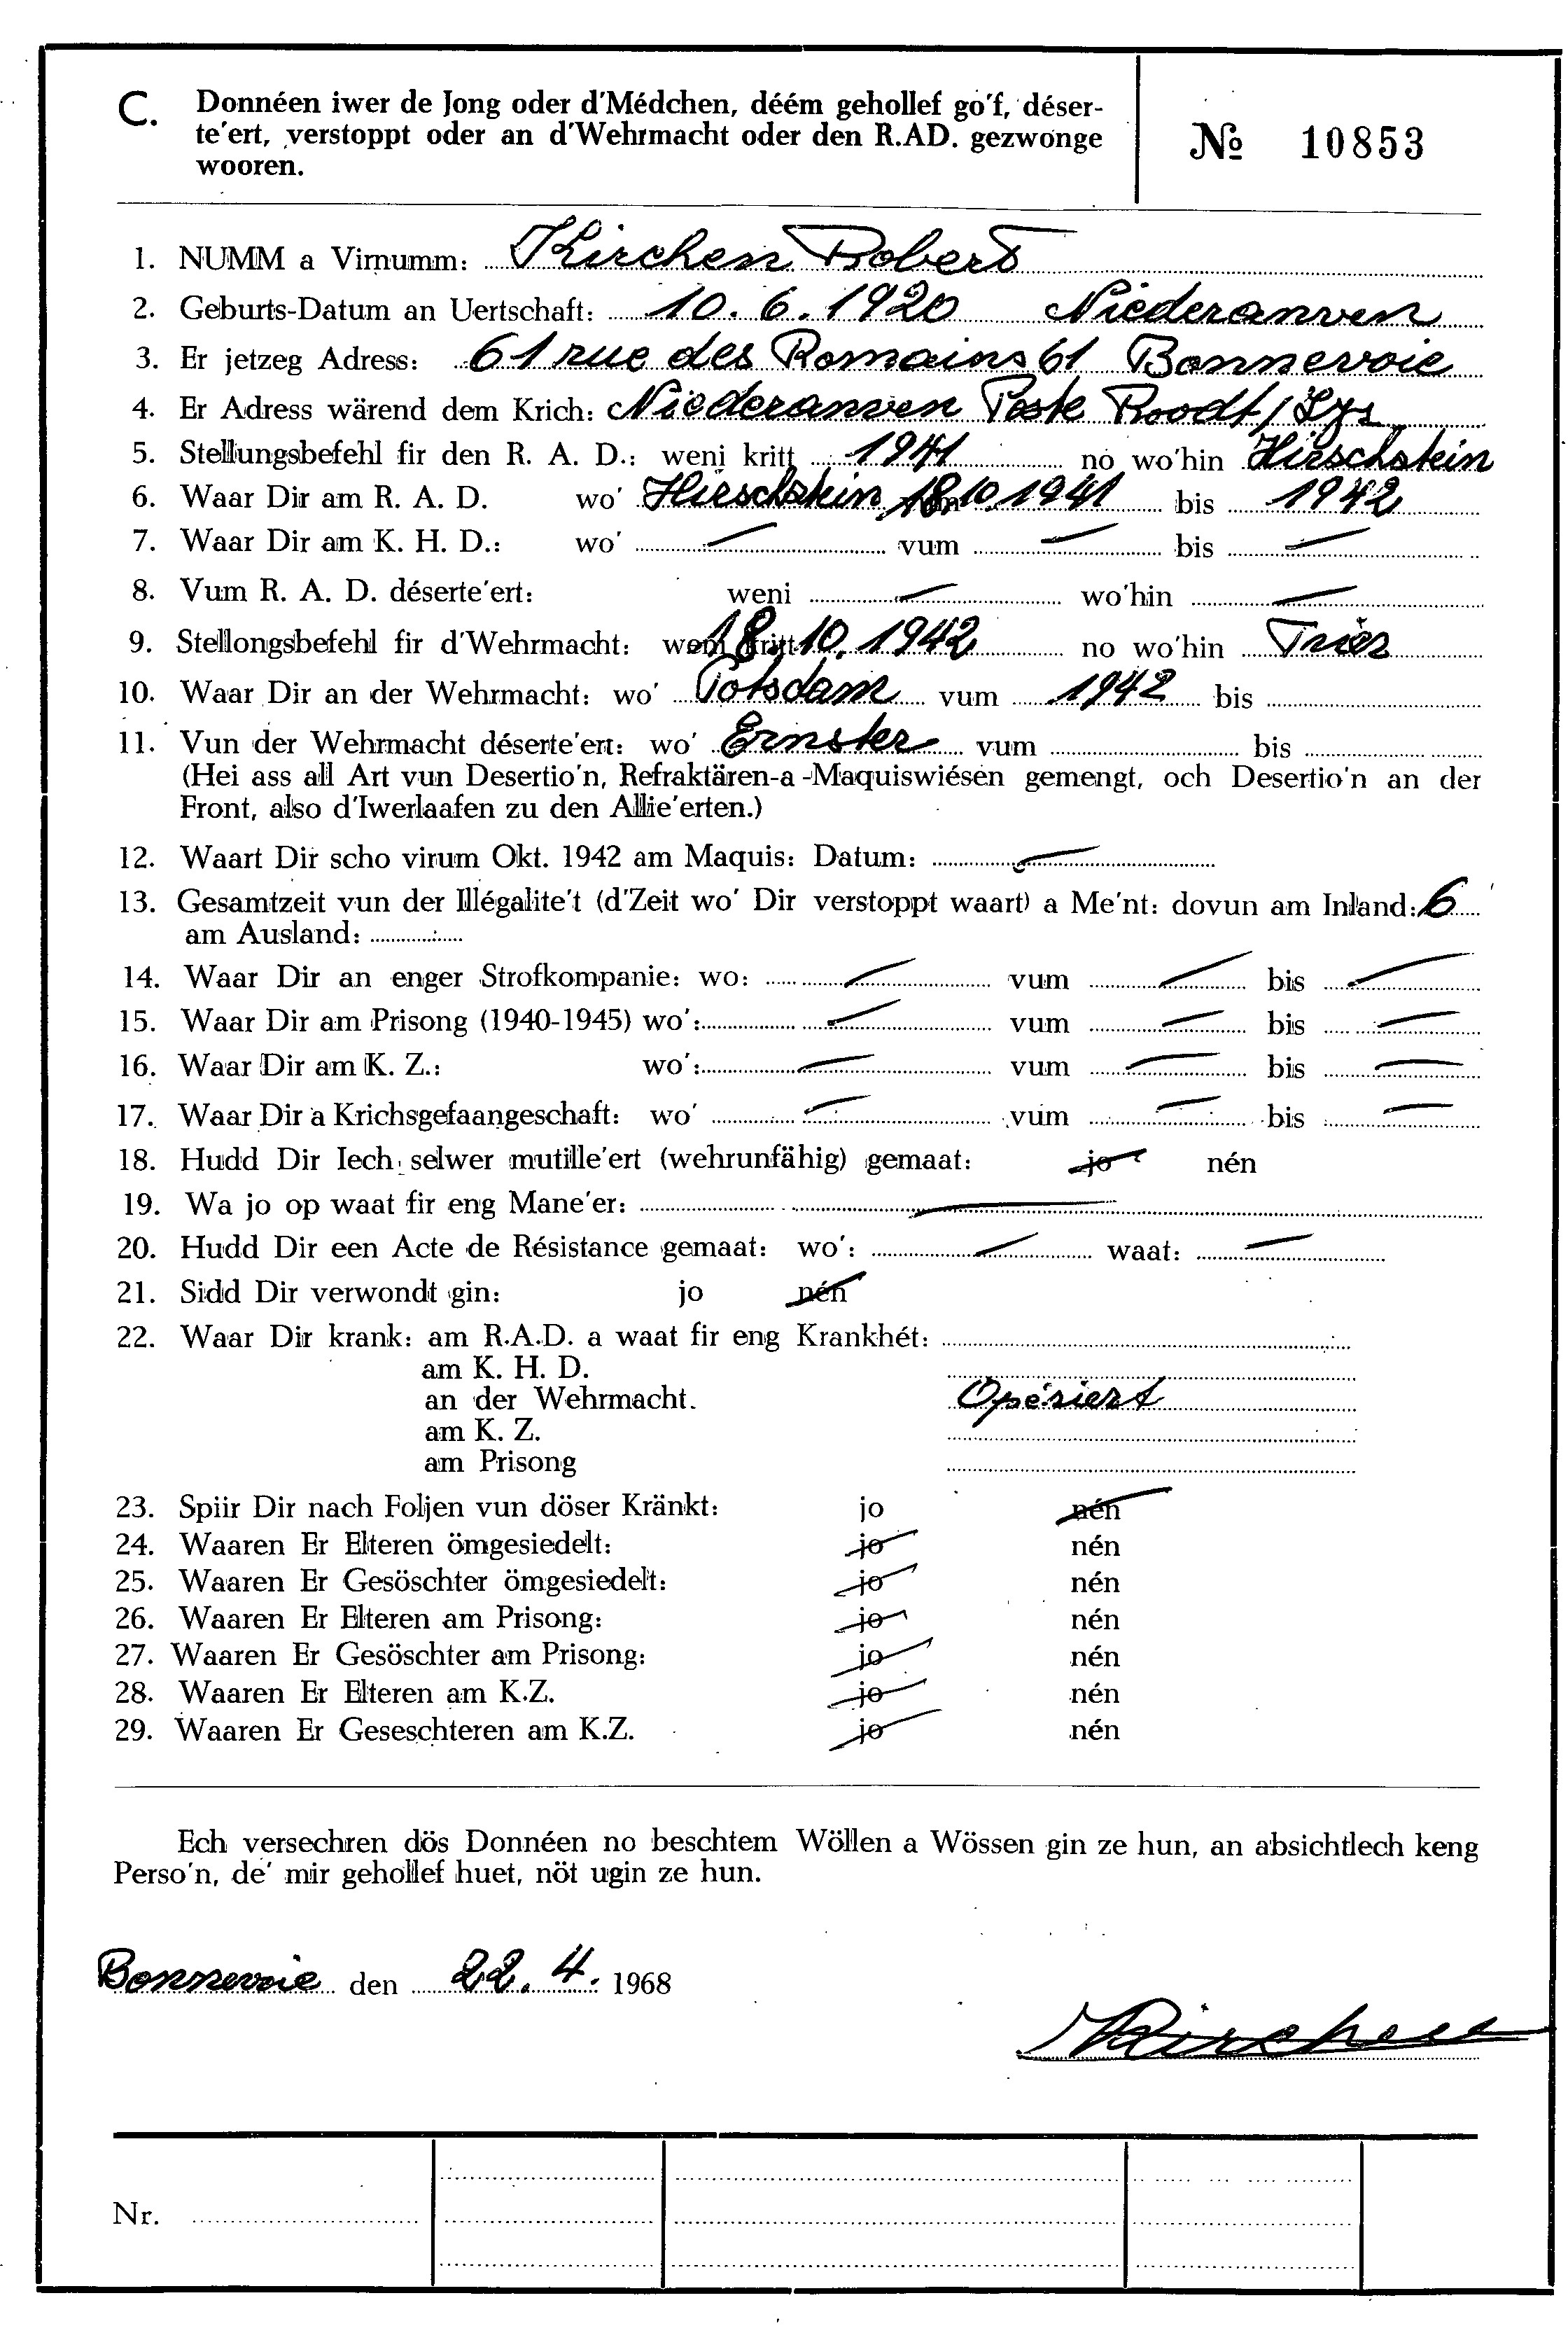 C. Donnéen iwer de Jong oder d'Médchen, déém gehollef go'f, déser-
te'ert, verstoppt oder an d'Wehrmacht oder den R.AD. gezwonge
wooren.
№ 10853
1. NUMM a Virnumm: Kirchen Robert
2. Geburts-Datum an Uertschaft: 10. 6. 1920 Niederanven
3. Er jetzeg Adress: 61 rue des Romains 61 Bonnevoie
4. Er Adress wärend dem Krich: Niederanven Poste Roodt/Syr
5. Stellungsbefehl fir den R. A. D.: weni kritt 1941 no wo'hin Hirschstein
6. Waar Dir am R. A. D. wo' Hirschstein vum 18.10.1941 bis 1942
7. Waar Dir am K. H. D.: wo' — vum — bis —
8. Vum R. A. D. déserte'ert: weni — wo'hin —
9. Stellongsbefehl fir d'Wehrmacht: weni kritt 18.10.1942 no wo'hin Trier
10. Waar Dir an der Wehrmacht: wo' Potsdam vum 1942 bis
11. Vun der Wehrmacht déserte'ert: wo' Ernster vum bis
(Hei ass all Art vun Desertio'n, Refraktären-a-Maquiswiésen gemengt, och Desertio'n an der
Front, also d'Iwerlaafen zu den Allie'erten.)
12. Waart Dir scho virum Okt. 1942 am Maquis: Datum: —
13. Gesamtzeit vun der Illégalite't (d'Zeit wo' Dir verstoppt waart) a Me'nt: dovun am Inland: 6
am Ausland:
14. Waar Dir an enger Strofkompanie: wo: — vum — bis —
15. Waar Dir am Prisong (1940-1945) wo': — vum — bis —
16. Waar Dir am K. Z.: wo': — vum — bis —
17. Waar Dir a Krichsgefaangeschaft: wo' — vum — bis —
18. Hudd Dir Iech selwer mutille'ert (wehrunfähig) gemaat: jo nén
19. Wa jo op waat fir eng Mane'er: —
20. Hudd Dir een Acte de Résistance gemaat: wo': — waat: —
21. Sidd Dir verwondt gin: jo nén
22. Waar Dir krank: am R.A.D. a waat fir eng Krankhét:
am K. H. D.
an der Wehrmacht. Opériert
am K. Z.
am Prisong
23. Spiir Dir nach Foljen vun döser Kränkt: jo nén
24. Waaren Er Elteren ömgesiedelt: jo nén
25. Waaren Er Gesöschter ömgesiedelt: jo nén
26. Waaren Er Elteren am Prisong: jo nén
27. Waaren Er Gesöschter am Prisong: jo nén
28. Waaren Er Elteren am K.Z. jo nén
29. Waaren Er Geseschteren am K.Z. jo nén
Ech versechren dös Donnéen no beschtem Wöllen a Wössen gin ze hun, an absichtlech keng
Perso'n, de' mir gehollef huet, nöt ugin ze hun.
Bonnevoie den 22. 4. 1968
Kirchen
Nr.